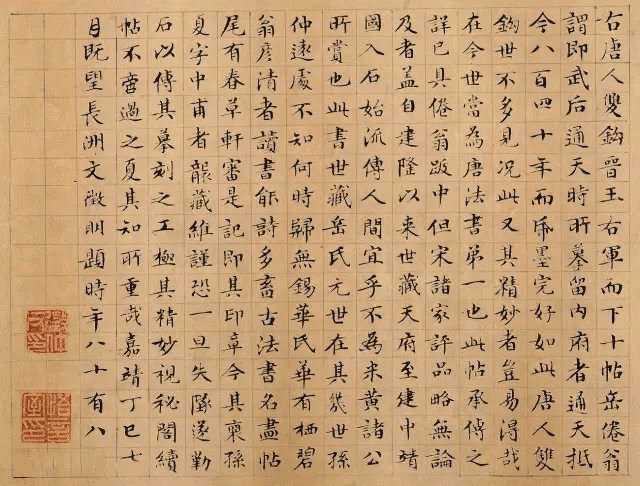 右唐人雙鈎晉王右軍而下十帖岳倦翁
謂即武后通天時所摹留內府者通天抵
今八百四十年而帋墨完好如此唐人雙
鈎世不多見況此又其精妙者豈易得哉
在今世當為唐法書第一也此帖承傳之
詳已具倦翁跋中但宋諸家評品略無論
及者蓋自建隆以來世藏天府至建中靖
國入石始流傳人間宜乎不為米黃諸公
所賞也此書世藏岳氏元世在其幾世孫
仲遠處不知何時歸無錫華氏華有栖碧
翁彥清者讀書能詩多畜古法書名畫帖
尾有春草軒審是記即其印章今其裔孫
夏字中甫者襲藏維謹恐一旦失墜遂勒
石以傳其摹刻之工極其精妙視秘閣續
帖不啻過之夏其知所重哉嘉靖丁巳七
月既望長洲文徵明題時年八十有八